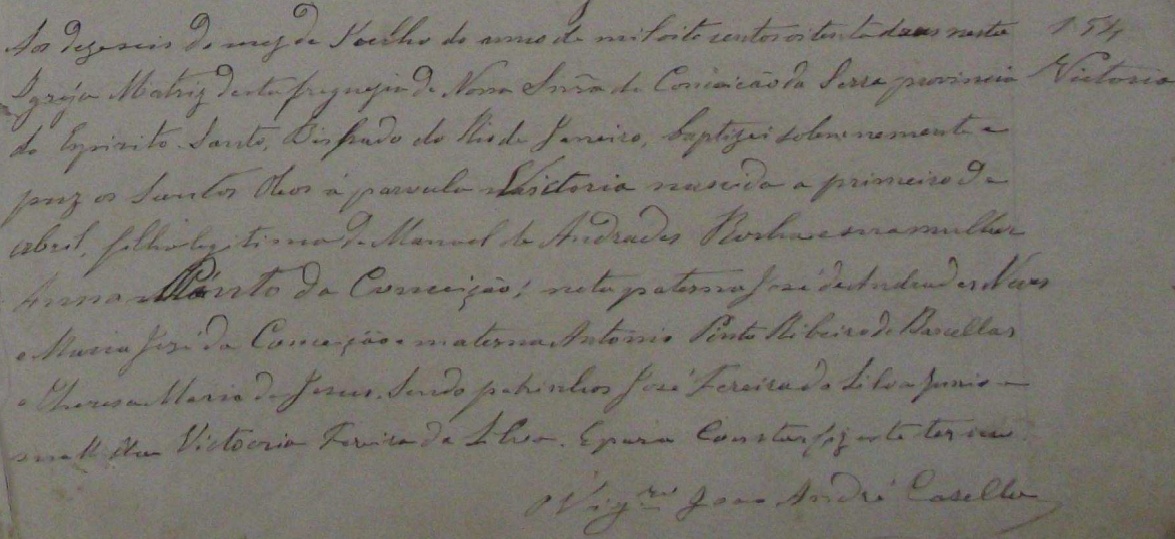 Aos dezeseis do mez de Juelho do anno de mil oito centos oitenta dous nesta
154
Igreja Matriz desta freguezia de Nossa Snrã da Conceicão da Serra provincia
Victoria
do Espirito Santo, Bispado do Rio de Janeiro, baptizei solennemente e
puz os Santos Oleos á parvula Victoria nascida a primeiro de
abril, filha legitima de Manoel de Andrades Rocha e sua mulher
Anna Pinto da Conceição; neta paterna José de Andrades Neves
e Maria José da Conceição e materna Antonio Pinto Ribeiro de Barcellos
e Theresa Maria de Jesus. Sendo padrinhos José Fereira da Silva Junio e
sua Victoria Fereira da Silva. E para Constar fiz este termo.
O Vigrº João André Casella